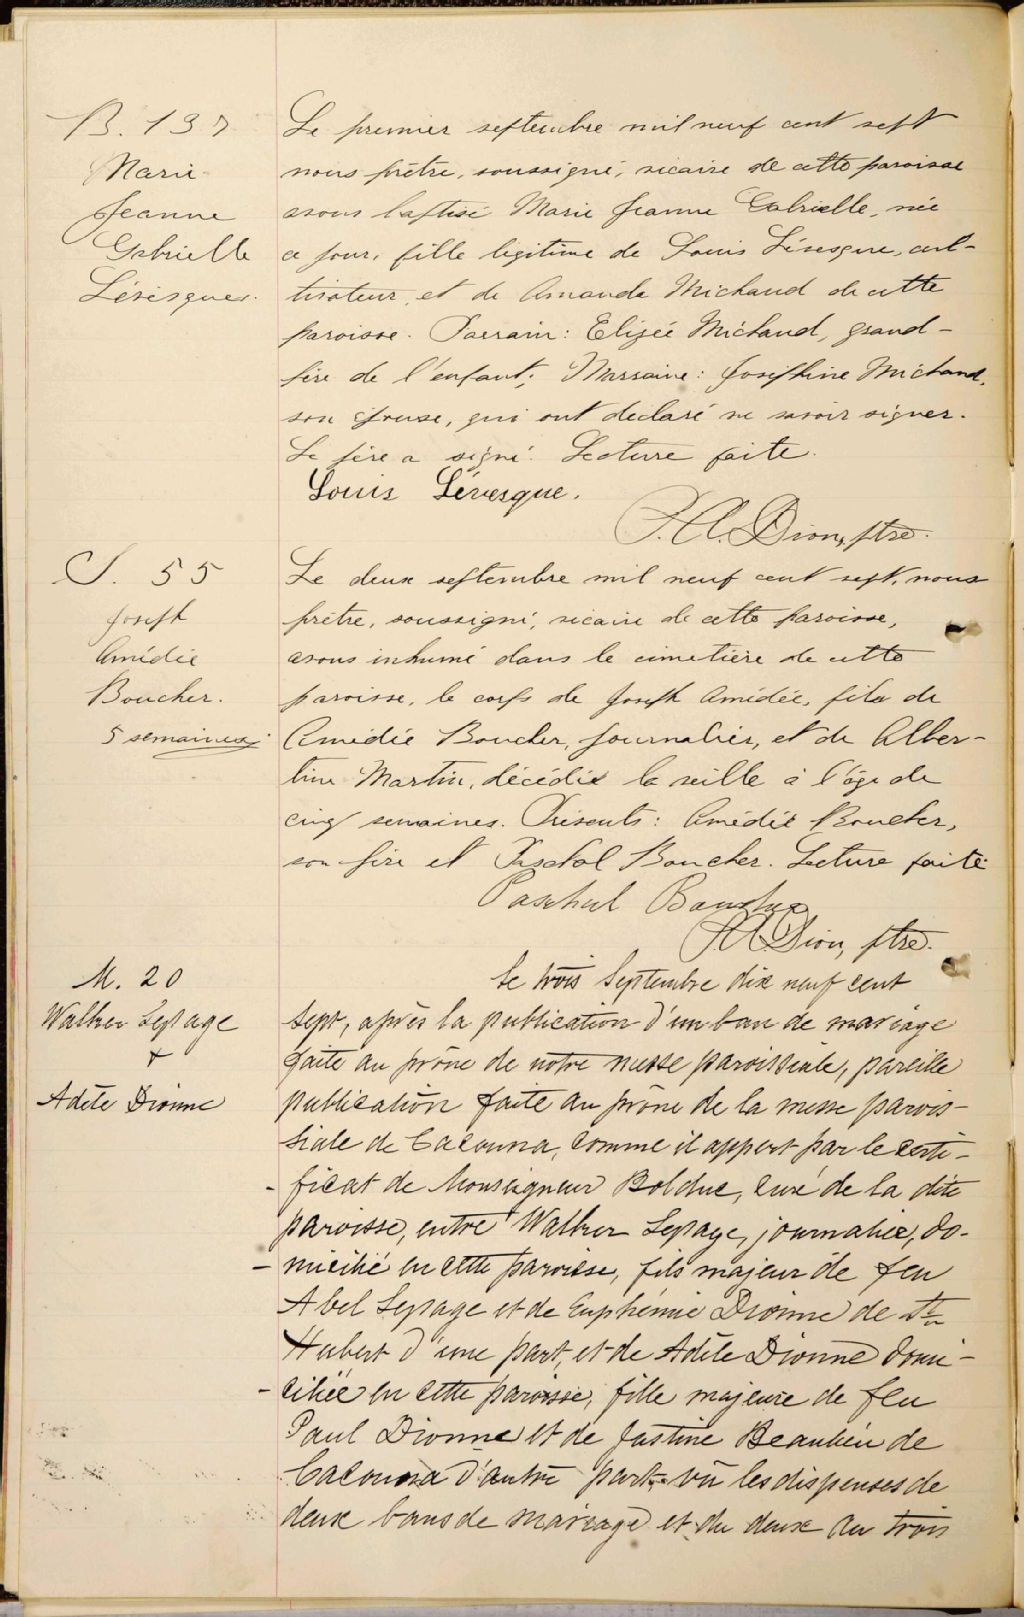 B. 137
Marie
Jeanne
Gabrielle
Lévesque.
Le premier septembre mil neuf cent sept
nous prêtre, soussigné, vicaire de cette paroisse
avons baptisé Marie Jeanne Gabrielle, née
ce jour, fille légitime de Louis Lévesque, cul-
tivateur, et de Amanda Michaud de cette
paroisse. Parrain: Elizée Michaud, grand-
père de l'enfant; Marraine: Joséphine Michaud,
son épouse, qui ont déclaré ne savoir signer.
Le père a signé. Lecture faite.
Louis Lévesque.
J. A. Dion, ptre.
S. 55
Joseph
Amédée
Boucher.
5 semaines.
Le deux septembre mil neuf cent sept, nous
prêtre, soussigné, vicaire de cette paroisse,
avons inhumé dans le cimetière de cette
paroisse, le corps de Joseph Amédée, fils de
Amédée Boucher, journalier, et de Alber-
tine Martin, décédé la veille à l'âge de
cinq semaines. Présents: Amédée Boucher,
son père et Paschal Boucher. Lecture faite.
Paschal Boucher
J. A. Dion, ptre.
M. 20
Walker Lepage
+
Adèle Dionne
Le trois Septembre dix neuf cent
sept, après la publication d'un ban de mariage
faite au prône de notre messe paroissiale, pareille
publication faite au prône de la messe parois-
siale de Cacouna, comme il appert par le certi-
- ficat de Monseigneur Bolduc, curé de la dite
paroisse, entre Walker Lepage, journalier, do-
- micilié en cette paroisse, fils majeur de feu
Abel Lepage et de Euphémie Dionne de St
Hubert d'une part, et de Adèle Dionne domi-
- ciliée en cette paroisse, fille majeure de feu
Paul Dionne et de Justine Beaulieu de
Cacouna d'autre part, vu les dispenses de
deux bans de mariage et du deux au trois